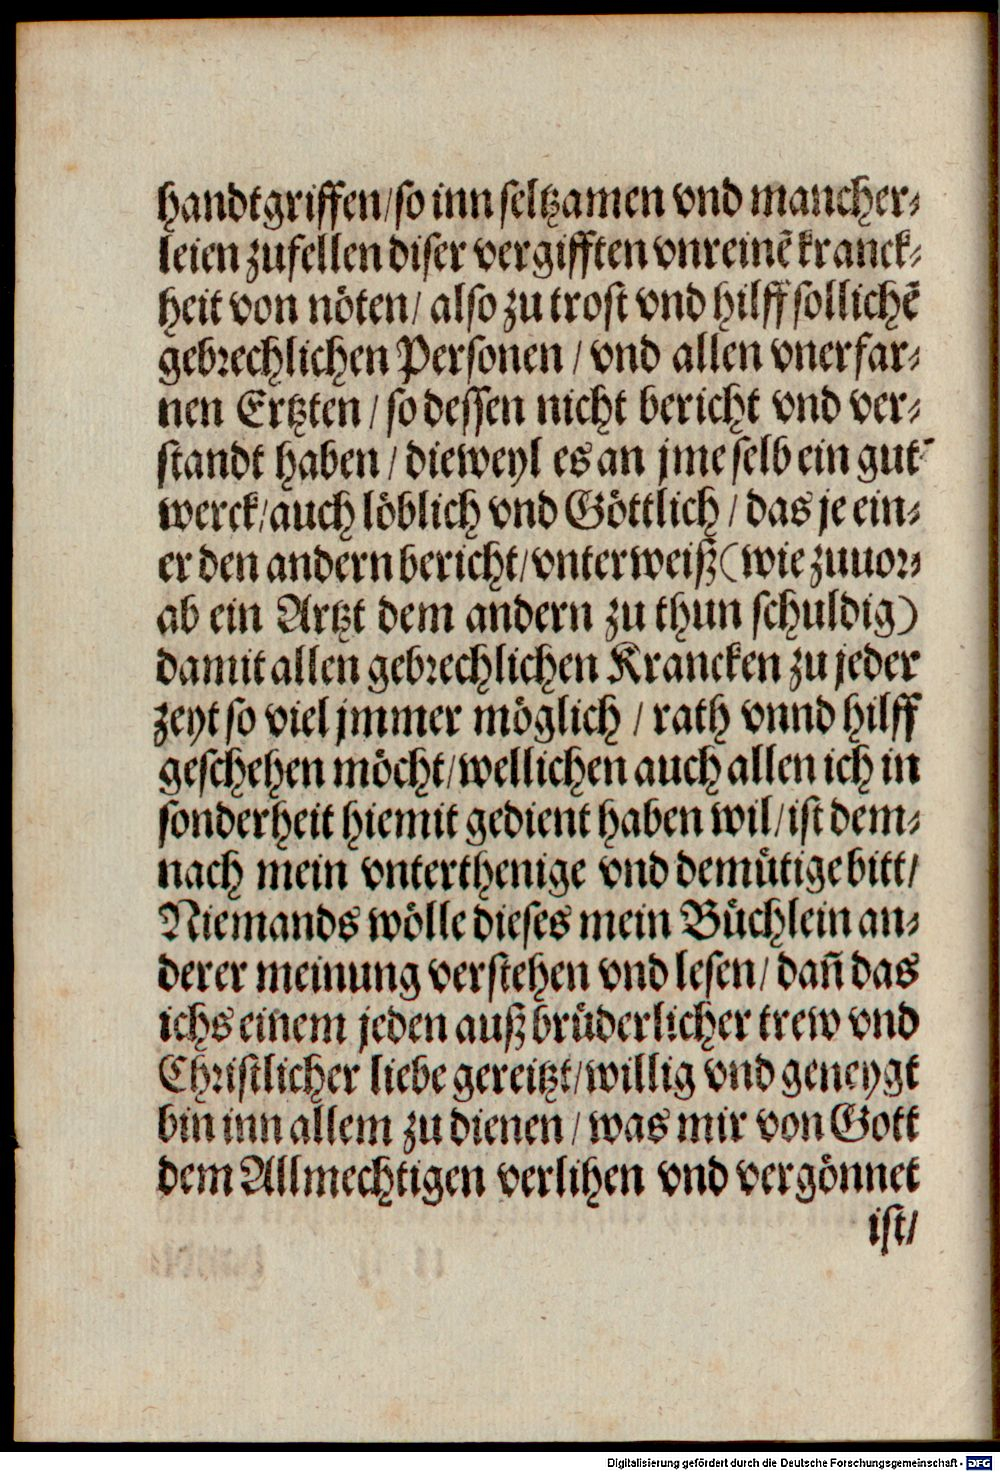 handtgriffen/ so inn seltzamen vnd mancher⸗
leien zufellen diser vergifften vnreinẽ kranck⸗
heit von nöten/ also zu trost vnd hilff sollichẽ
gebrechlichen Personen / vnd allen vnerfar⸗
nen Ertzten / so dessen nicht bericht vnd ver⸗
standt haben / dieweyl es an jme selb ein gut
werck/ auch löblich vnd Göttlich / das je ein⸗
er den andern bericht/ vnterweiß (wie zuuor⸗
ab ein Artzt dem andern zu thun schuldig)
damit allen gebrechlichen Krancken zu jeder
zeyt so viel jmmer möglich / rath vnnd hilff
geschehen möcht/ wellichen auch allen ich in
sonderheit hiemit gedient haben wil/ ist dem⸗
nach mein vnterthenige vnd demütige bitt/
Niemands wölle dieses mein Büchlein an⸗
derer meinung verstehen vnd lesen/ dañ das
ichs einem jeden auß brüderlicher trew vnd
Christlicher liebe gereitzt/ willig vnd geneygt
bin inn allem zu dienen / was mir von Gott
dem Allmechtigen verlihen vnd vergönnet
ist/
Digitalisierung gefördert durch die Deutsche Forschungsgemeinschaft - DFG